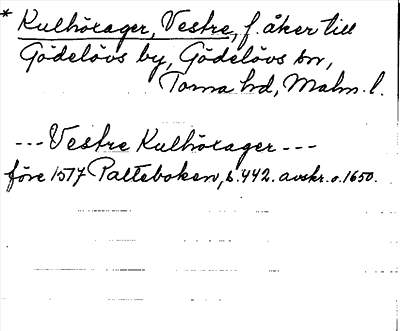 * Kulhöxager, Vestre, f. åker till
Gödelövs by, Gödelövs sn,
Torna hd, Malm. l.
--- Vestre Kulhöxager ---
före 1517 Palteboken, s. 442. avskr. o. 1650.